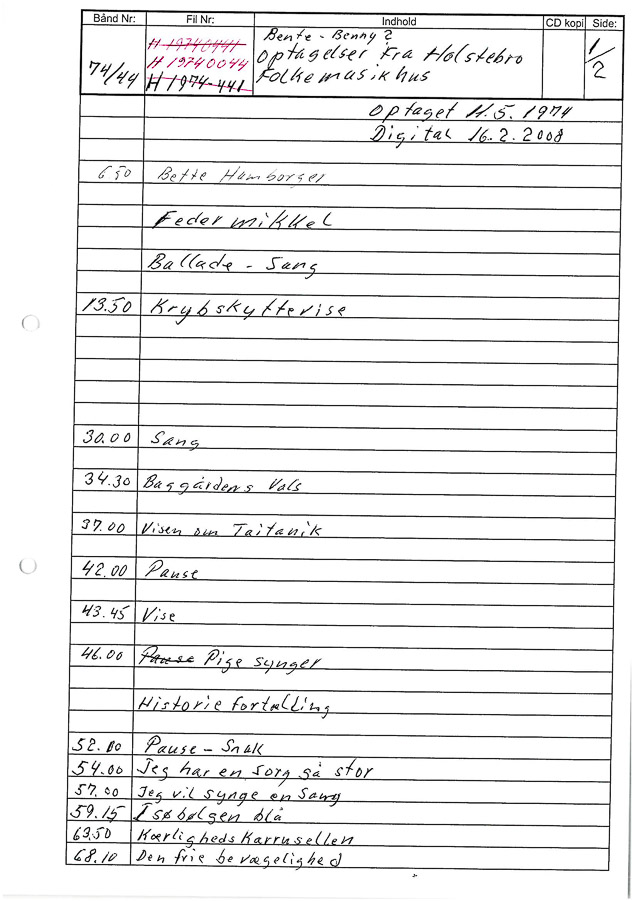 Bånd Nr: Fil Nr: Indhold CD kopi Side:
74/44
H 19740441
H 19740044
H 1974-441
Bente - Benny 2
Optagelser Fra Holstebro
Folkemusikhus
1/2
Optaget 11.5.1974
Digital 16.2.2008
6 50 Bette Hamborger
Feder mikkel
Ballade - Sang
13.50 Krybskyttevise
30.00 Sang
34.30 Baggårdens Vals
37.00 Visen om Taitanik
42.00 Pause
43.45 Vise
46.00 Pause Pige synger
Historie fortælling
52.00 Pause - Snak
54.00 Jeg har en sorg så stor
57.00 Jeg vil synge en Sang
59.15 I søbølgen blå
63.50 Kærligheds Karrusellen
68.10 Den frie bevægelighed